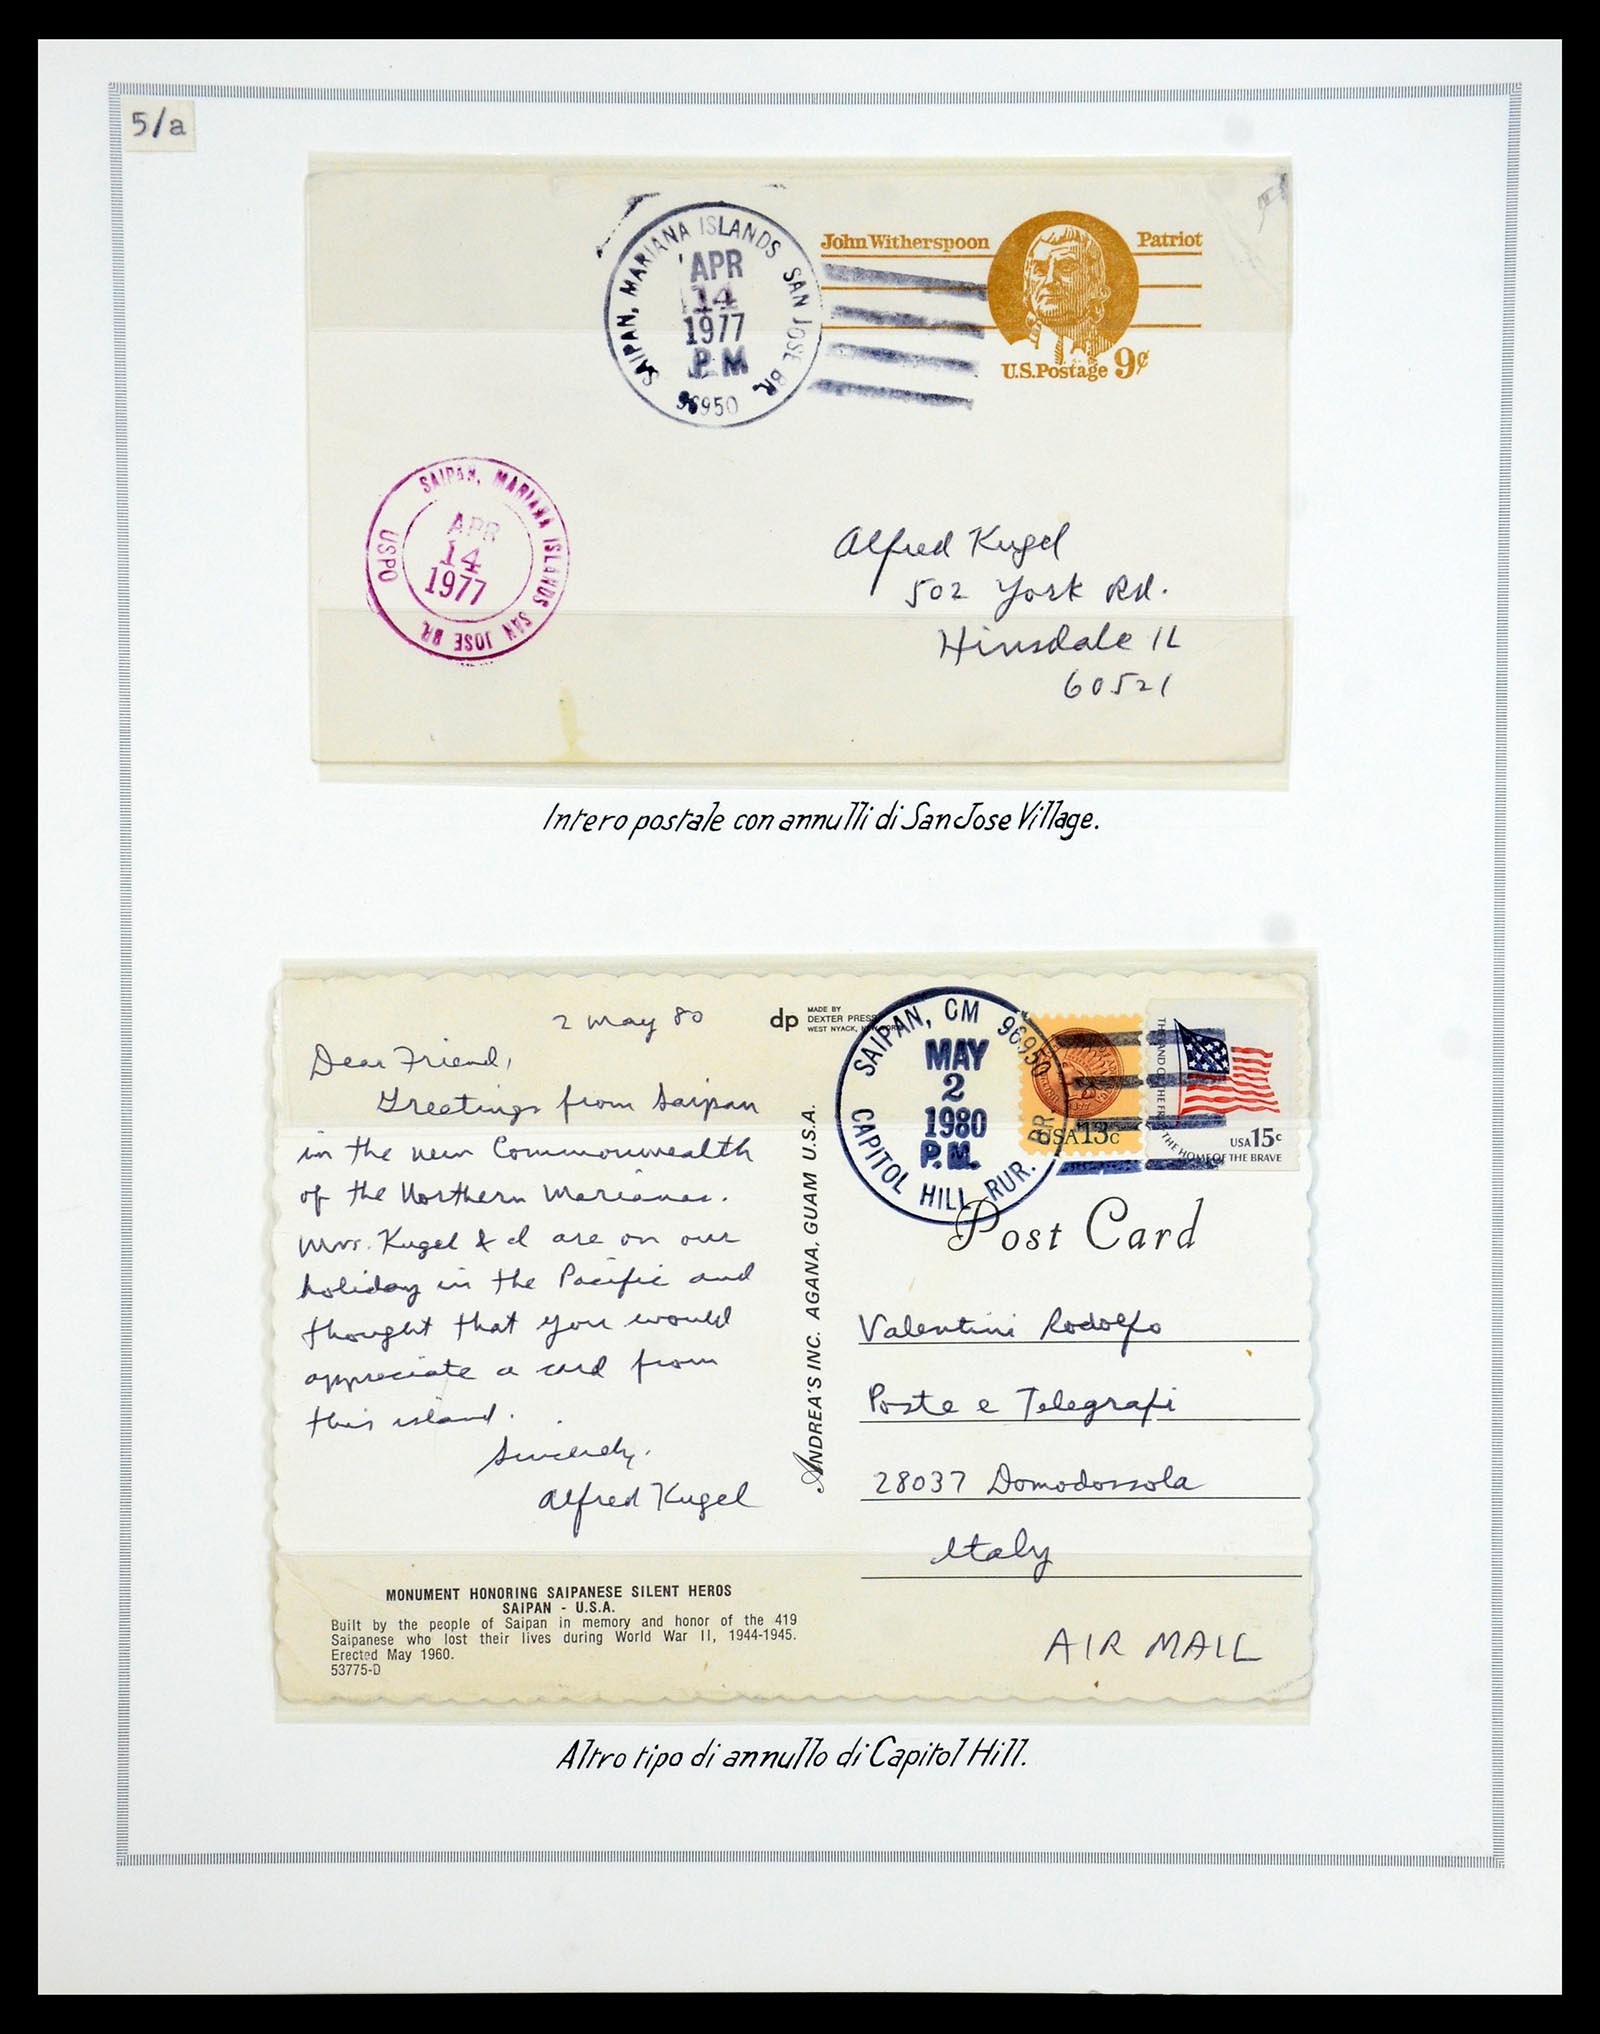 5/a
SAIPAN, MARIANA ISLANDS SAN JOSE BR.
APR
14
1977
P M
96950
John Witherspoon Patriot
U.S.Postage 9¢
SAIPAN, MARIANA ISLANDS SAN JOSE BR.
USPO
APR
14
1977
Alfred Kugel
502 York Rd.
Hinsdale IL
60521
Intero postale con annulli di San Jose Village.
2 May 80
Dear Friend,
Greetings from Saipan
in the new Commonwealth
of the Northern Marianas.
Mrs. Kugel & I are on our
holiday in the Pacific and
thought that you would
appreciate a card from
this island.
Sincerely,
Alfred Kugel
dp MADE BY
DEXTER PRESS
WEST NYACK, NEW YORK
SAIPAN, CM 96950
MAY
2
1980
P.M.
CAPITOL HILL RUR. BR.
USA 13c
THE LAND OF THE FREE THE HOME OF THE BRAVE
USA 15c
ANDREA'S INC. AGANA, GUAM U.S.A.
Post Card
Valentini Rodolfo
Poste e Telegrafi
28037 Domodossola
Italy
AIR MAIL
MONUMENT HONORING SAIPANESE SILENT HEROS
SAIPAN - U.S.A.
Built by the people of Saipan in memory and honor of the 419
Saipanese who lost their lives during World War II, 1944-1945.
Erected May 1960.
53775-D
Altro tipo di annullo di Capitol Hill.